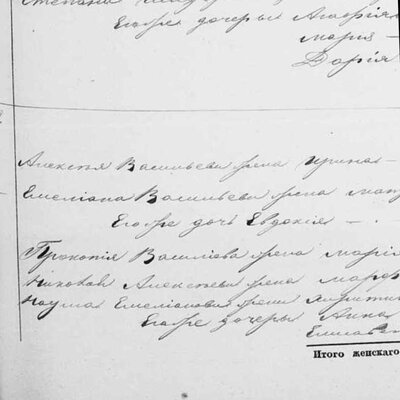 Степана
Егоже дочерья Агафія
Марія —
Дарія
Алексѣя Васильева жена Ирина —
Емеліана Васильева жена
Егоже дочь Евдокія —
Прокопія Василіева жена Марі
Алексѣева жена
Наума Емеліанова жена
Егоже дочеры Анна
Итого женскаго